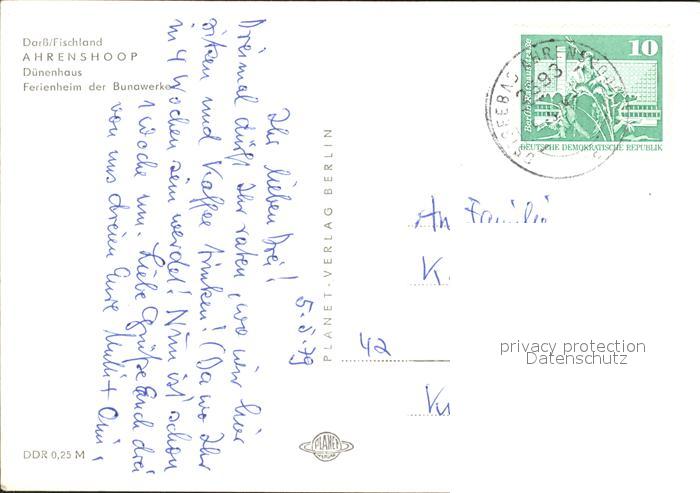 Darß/Fischland
AHRENSHOOP
Dünenhaus
Ferienheim der Bunawerke
5.5.79
Ihr lieben Drei!
Dreimal dürft Ihr raten, wo wir hier
sitzen und Kaffee trinken! (Da wo Ihr
in 4 Wochen sein werdet! Nun ist schon
1 Woche um. Liebe Grüße Euch drei
von uns dreien Eure
PLANET-VERLAG BERLIN
PLANET
DDR 0,25 M
10
DEUTSCHE DEMOKRATISCHE REPUBLIK
OSTSEEBAD AHRENSHOOP
2593
An Familie
K.
42
privacy protection
Datenschutz